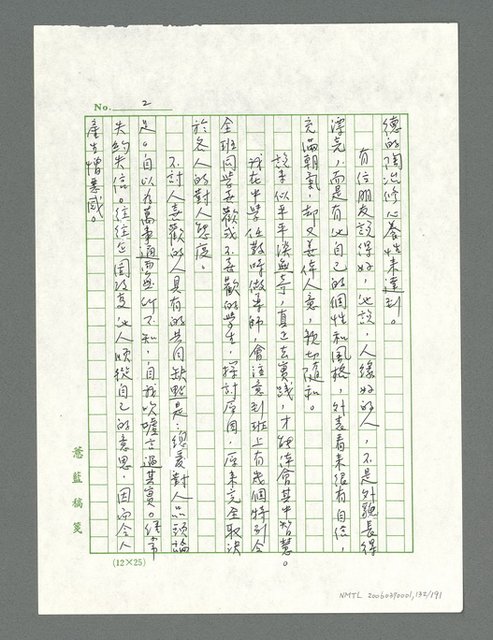 No. 2
德的陶冶修心養性來達到。
有位朋友說得好,他說,人緣好的人,不是外貌長得
漂亮,而是有他自己的個性和風格,外表看來很有自信,
充滿朝氣,卻又善体人意,親切隨和。
說來似乎平淡無奇,真正去實踐,才能体會其中智慧。
我在中學任教時做導師,會注意到班上有幾個特別令
全班同學喜歡或不喜歡的學生,探討原因,原來完全取決
於各人的對人態度。
不討人喜歡的人具有的共同缺點是:總愛對人品頭論
足。自以為萬事通而無所不知,自我吹噓言過其實。經常
失約失信。往往企圖改變他人順從自己的意思,因而令人
產生憎惡感。
薏藍稿箋
(12×25)
NMTL 20060390001,132/191